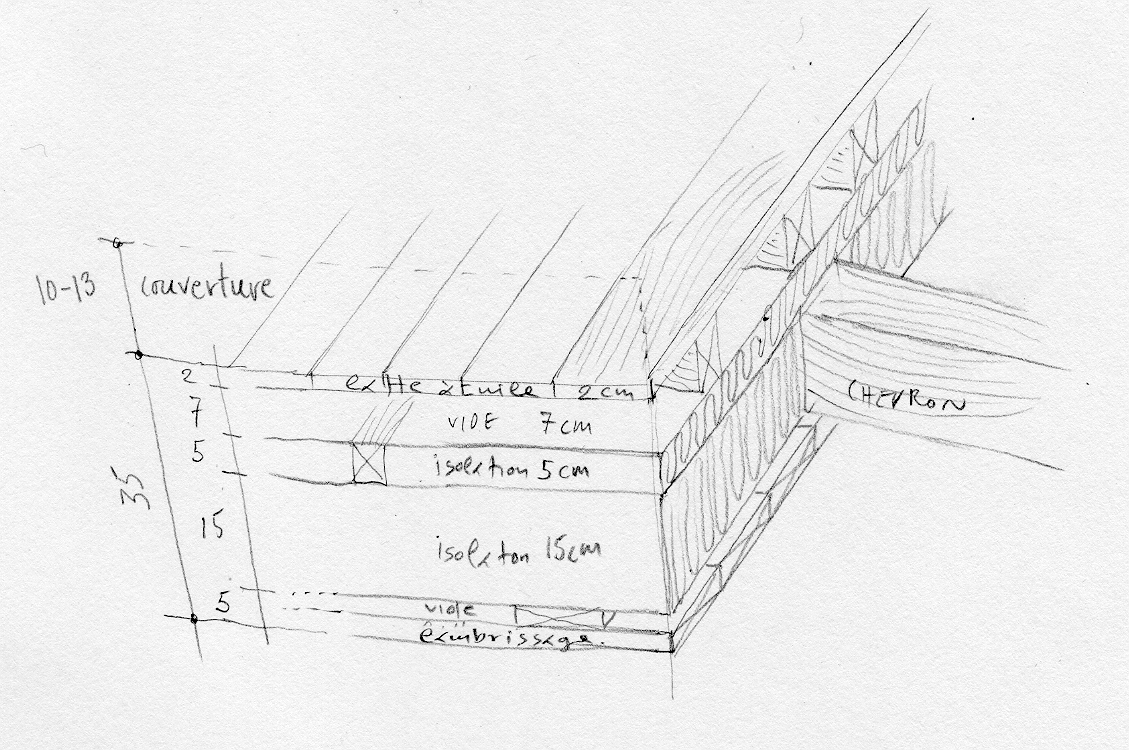 10-13 couverture
2
latte à tuile 2cm
7
VIDE 7cm
5
isolation 5cm
35
15
isolaton 15cm
CHEVRON
5
vide
lambrissage.